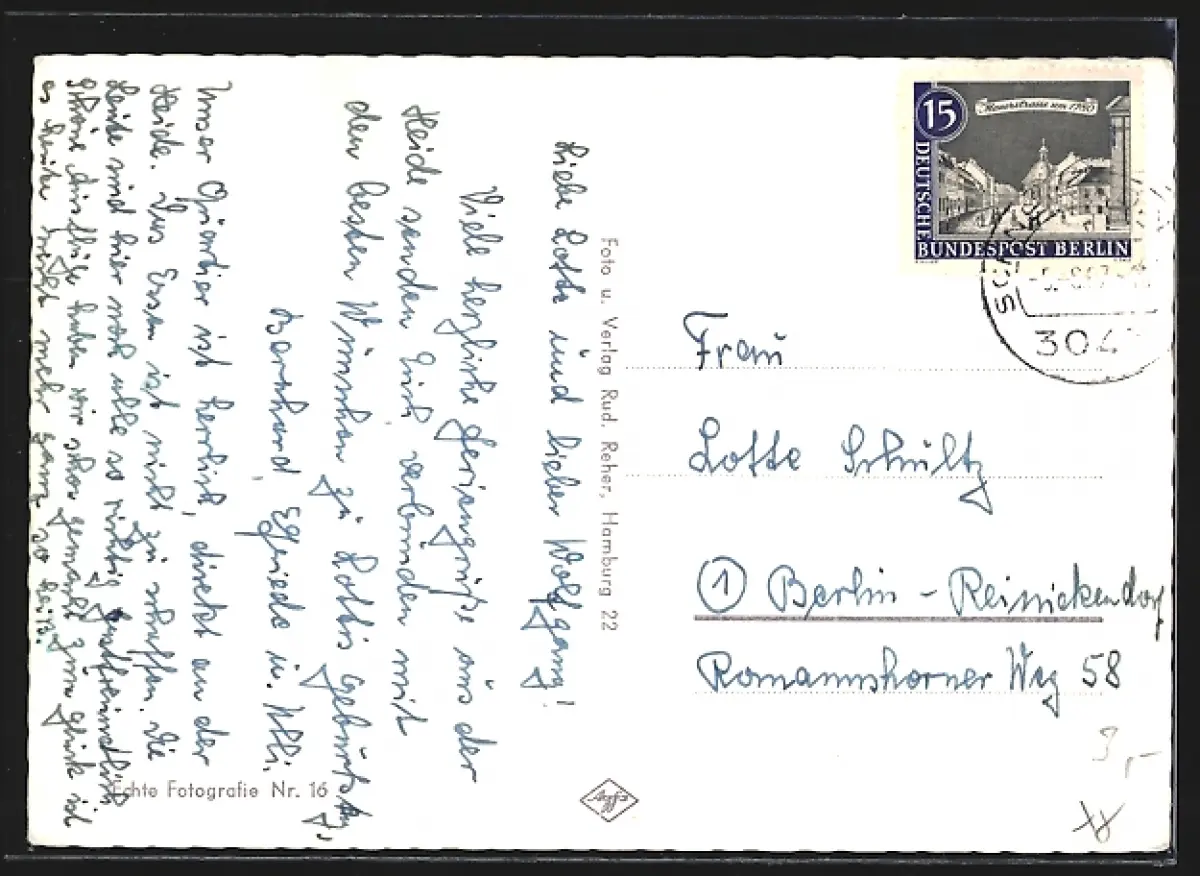 Liebe Lotte und lieber Wolfgang!
Viele herzliche Feriengrüße aus der
Heide senden Euch, verbunden mit
den besten Wünschen zu Lottis Geburtstag,
Bernhard, Egriede u. Ulli.
Unser Quartier ist herrlich, direkt an der
Heide. Das Essen ist nicht zu schaffen. Die
Leute sind hier noch alle so richtig gastfreundlich
schöne Ausflüge haben wir schon gemacht zum Glück ist
es heute nicht mehr ganz so heiß.
Echte Fotografie Nr. 16
Foto u. Verlag Rud. Reher, Hamburg 22
Agfa
15
Mauerstrasse um 1780
DEUTSCHE
BUNDESPOST BERLIN
304
Frau
Lotte Schultz
1 Berlin - Reinickendorf
Romanshorner Weg 58
3,-